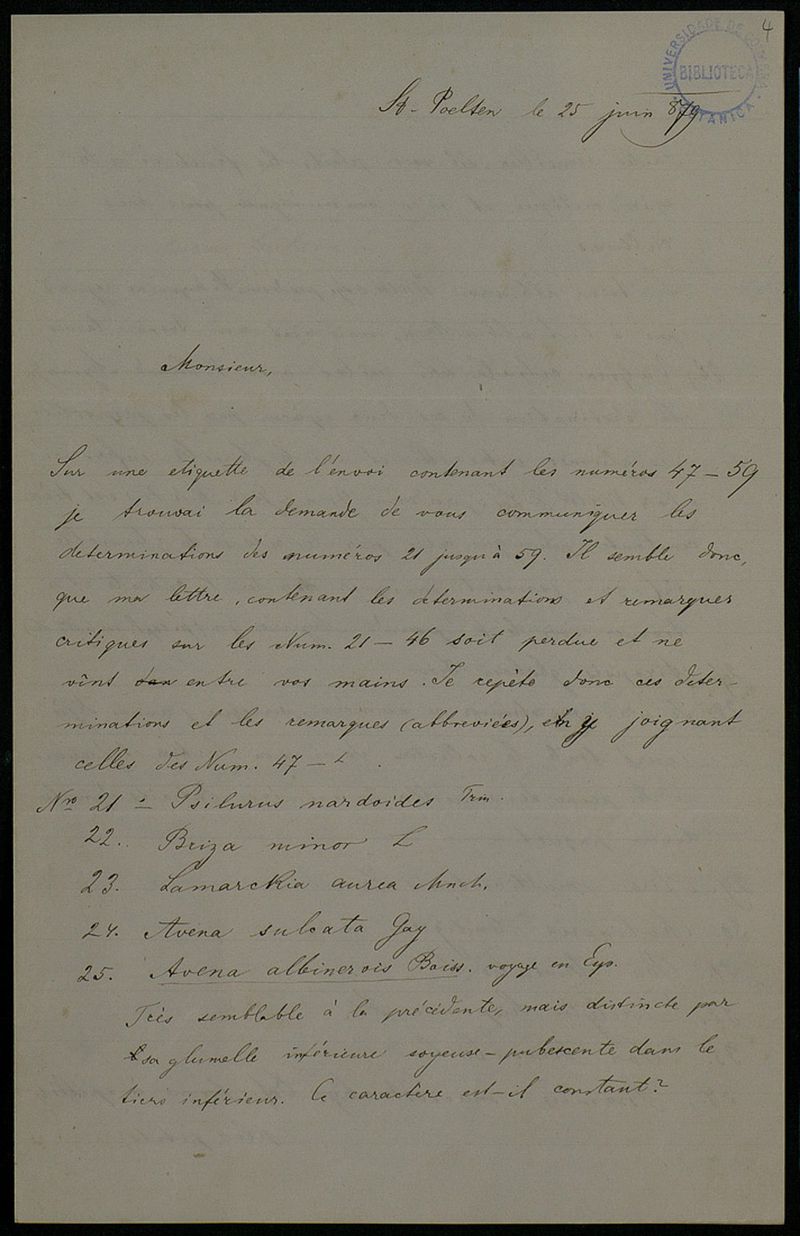 4
UNIVERSIDADE DE COIMBRA
BIBLIOTECA
BOTANICA
St-Poelten le 25 juin 879
Monsieur,
Sur une etiquette de l'énvoi contenant les numéros 47 – 59
je trouvai la demande de vous communiquer les
determinations des numéros 21 jusqu'à 59. Il semble donc,
que ma lettre, contenant les determinations et remarques
critiques sur les Num. 21 – 46 soit perdue et ne
vînt entre vos mains. Je repète donc ces deter-
minations et les remarques (abbreviées), en y joignant
celles des Num. 47 –
Nro 21 – Psilurus nardoides Trin.
22. Briza minor L
23. Lamarckia aurea Mnch.
24. Avena sulcata Gay
25. Avena albinervis Boiss. voyage en Esp.
Très semblable à la précédente, mais distincte par
sa glumelle inférieure soyeuse-pubescente dans le
tiers inférieur. Ce caractère est-il constant?